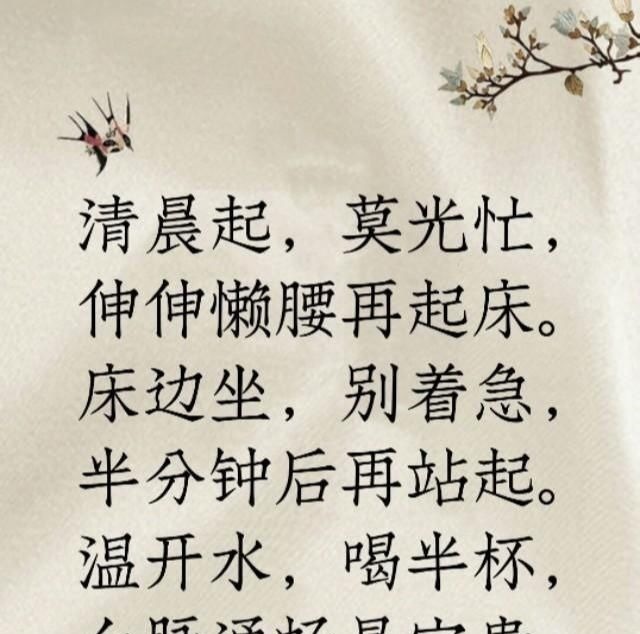 清晨起，莫光忙，
伸伸懒腰再起床。
床边坐，别着急，
半分钟后再站起。
温开水，喝半杯，